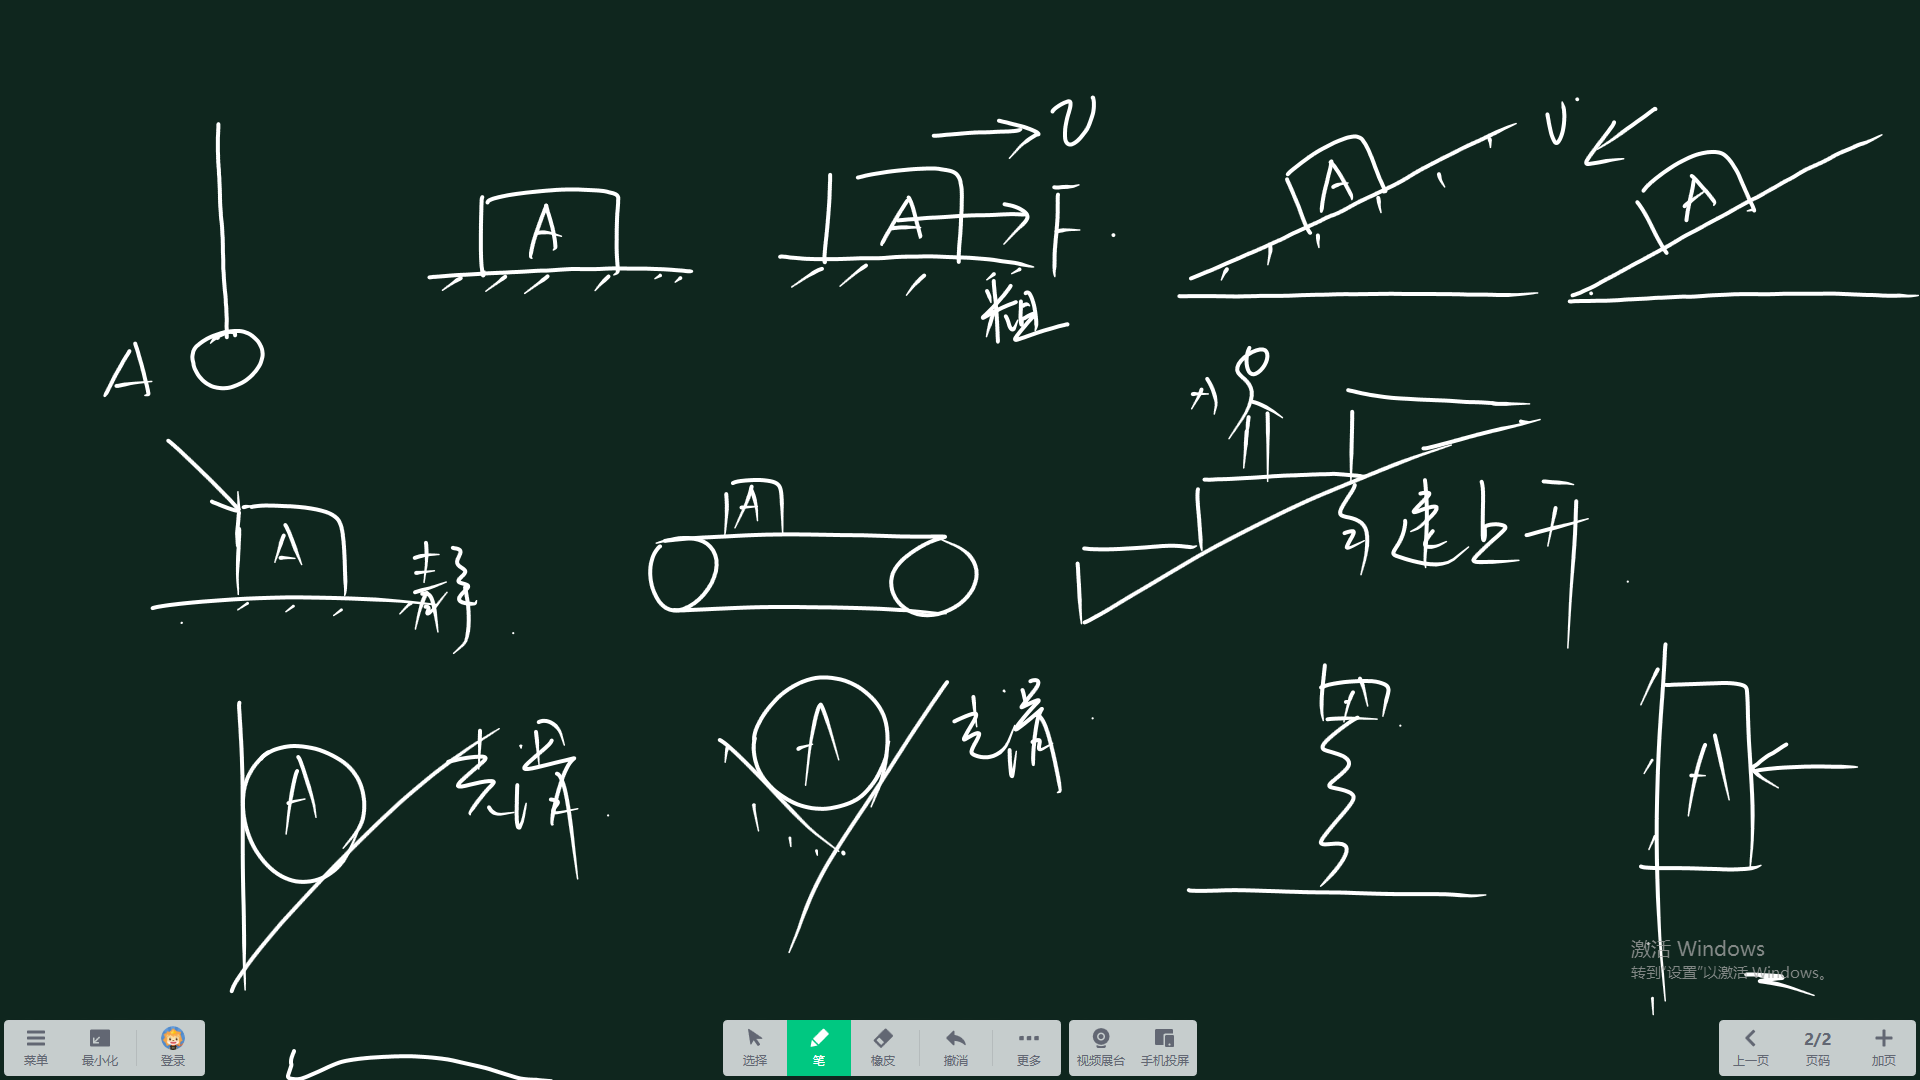 v
A
A
F
A
v
A
粗
A
人
A
A
静
匀速上升
A
光滑
A
光滑
A
A
激活 Windows
转到"设置"以激活 Windows。
菜单
最小化
登录
选择
笔
橡皮
撤消
更多
视频展台
手机投屏
上一页
2/2
页码
加页